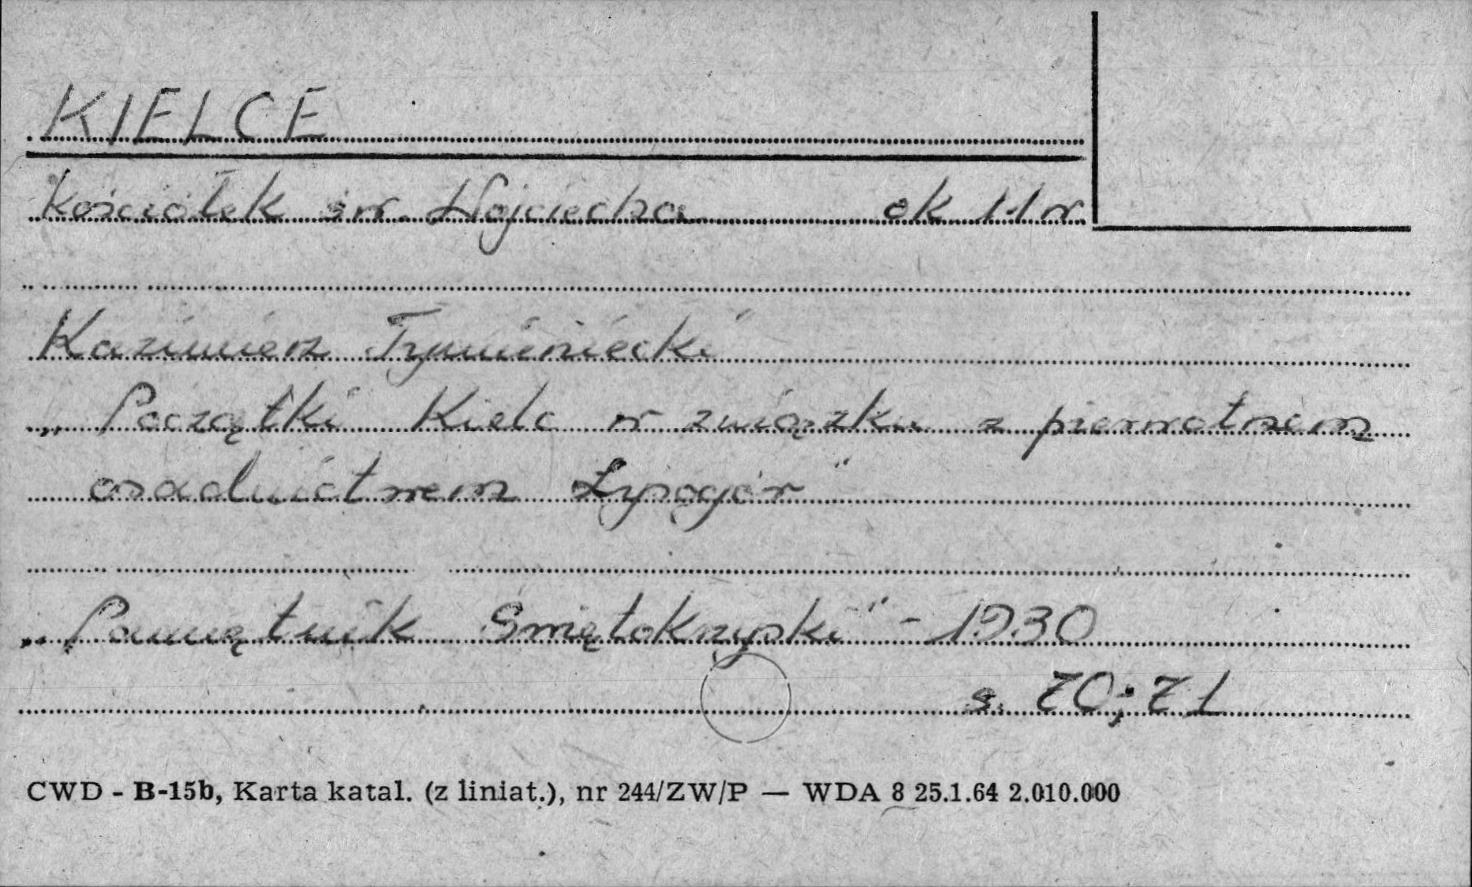 KIELCE
Kościółek św. Wojciecha ok 11 w.
Kazimierz Tymieniecki
„Początki Kielc w związku z pierwotnem
osadnictwem Łysogór"
„Pamiętnik Świętokrzyski" - 1930
s. 70; 71
CWD - B-15b, Karta katal. (z liniat.), nr 244/ZW/P — WDA 8 25.1.64 2.010.000